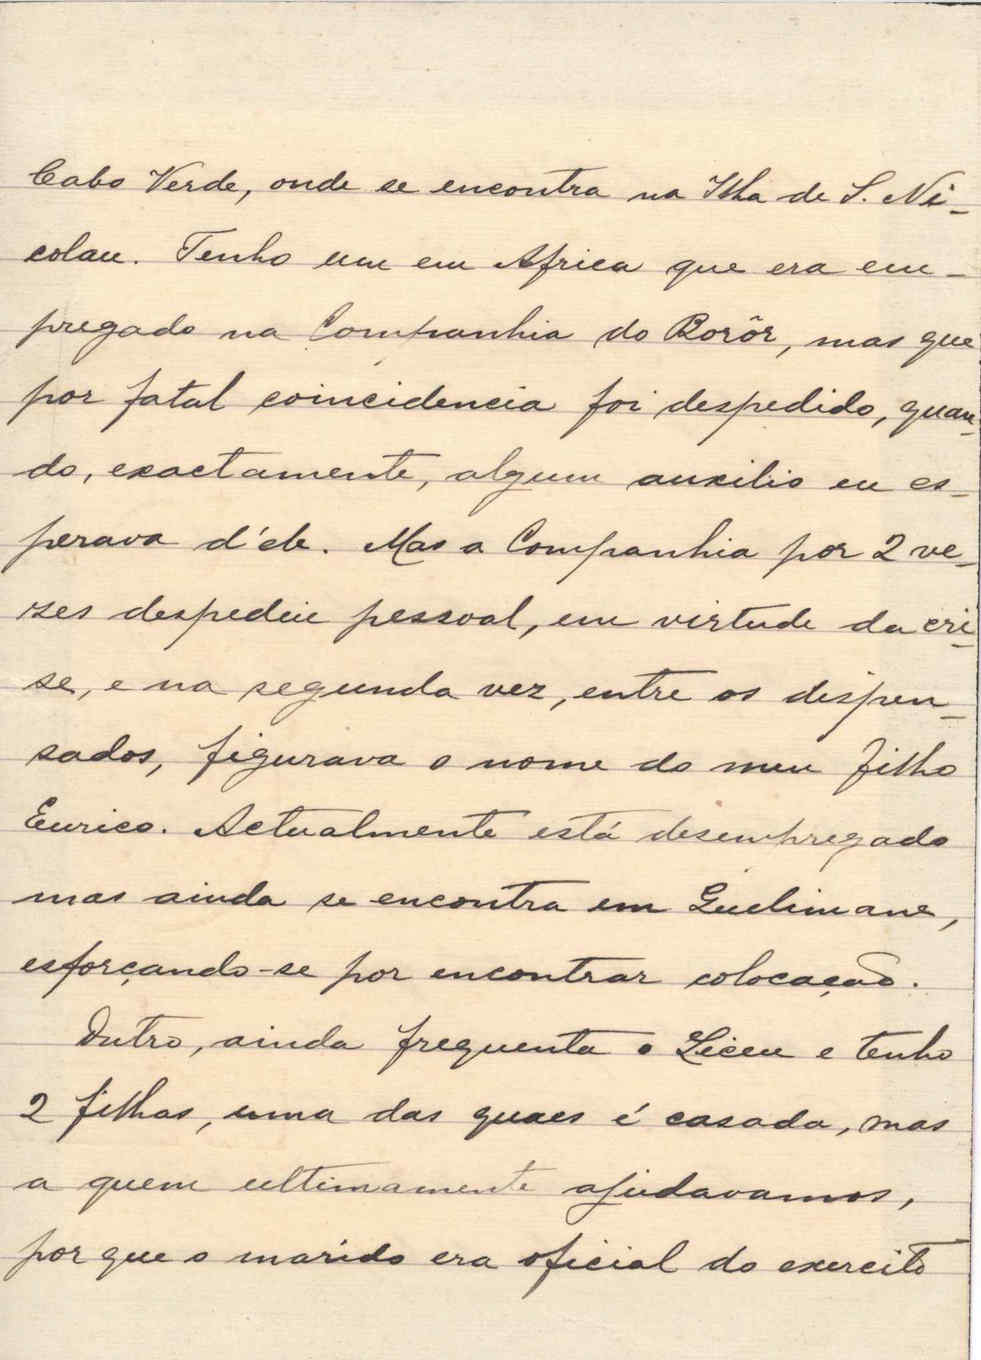 Cabo Verde, onde se encontra na Ilha de S. Ni-
colau. Tenho um em Africa que era em-
pregado na Companhia do Borôr, mas que
por fatal coincidencia foi despedido, quan-
do, exactamente, algum auxilio eu es-
perava d'ele. Mas a Companhia por 2 ve-
zes despediu pessoal, em virtude da cri-
se, e na segunda vez, entre os dispen-
sados, figurava o nome do meu filho
Eurico. Actualmente está desempregado
mas ainda se encontra em Quelimane,
esforçando-se por encontrar colocação.
Outro, ainda frequenta o Liceu e tenho
2 filhas, uma das quaes é casada, mas
a quem ultimamente ajudavamos,
por que o marido era oficial do exercito